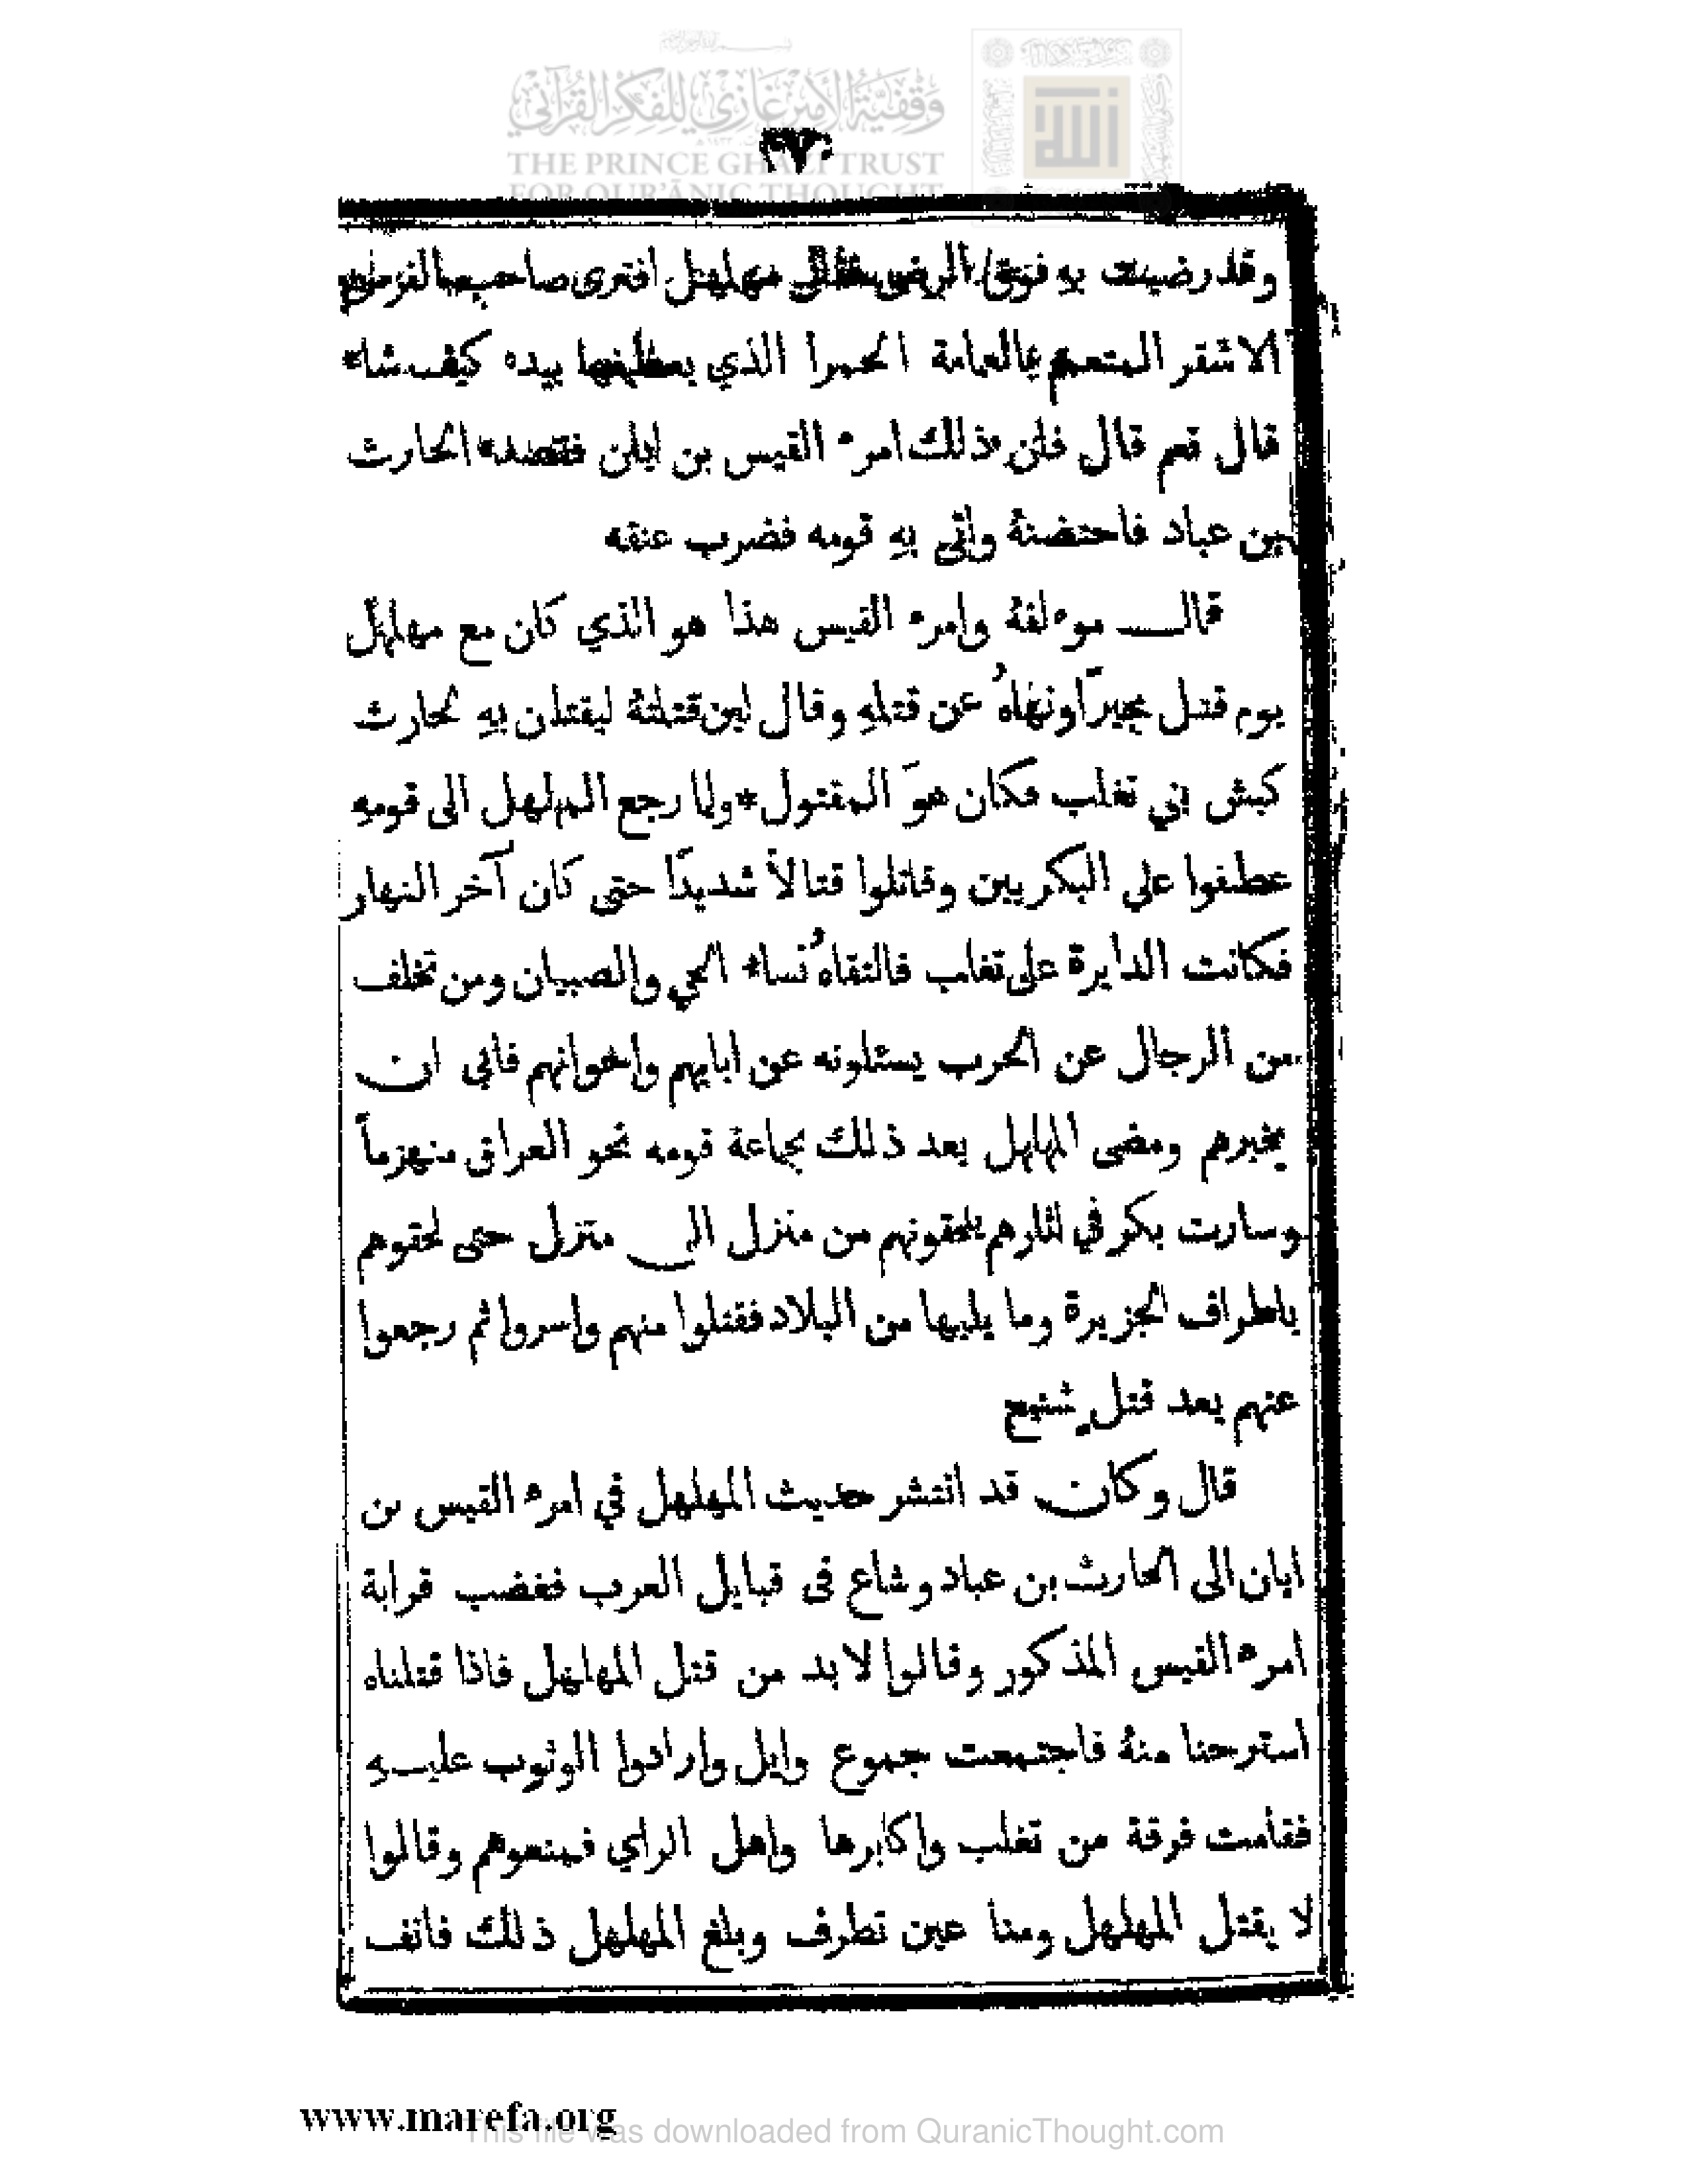 وقفية الأمير غازي للفكر القرآني
THE PRINCE GHAZI TRUST
FOR QUR'ĀNIC THOUGHT
وقد رضيت به فوق الرضى فقال مهلهل افترى صاحب الفرس
الاشقر المتعمم بالعمامة الحمرا الذي يعطفها بيده كيف شاء
قال نعم قال فان ذلك امرء القيس بن ابان فقصده الحارث
بن عباد فاحتضنهُ واتى بهِ قومه فضرب عنقه
قال موءلفهُ وامرء القيس هذا هو الذي كان مع مهلهل
يوم قتل بجيرًا ونهاهُ عن قتلهِ وقال لين قتلتهُ ليقتلن بهِ لحارث
كبش بني تغلب فكان هوَ المقتول * ولما رجع المهلهل الى قومهِ
عطفوا على البكريين وقاتلوا قتالاً شديدًا حتى كان آخر النهار
فكانت الدايرة على تغلب فالتقاهُ نساء الحي والصبيان ومن تخلف
من الرجال عن الحرب يسئلونه عن ابايهم واخوانهم فابي ان
يخبرهم ومضى المهلهل بعد ذلك بجماعة قومه نحو العراق منهزماً
وسارت بكر في اثارهم يلحقونهم من منزل الى منزل حتى لحقوهم
باطراف الجزيرة وما يليها من البلاد فقتلوا منهم واسروا ثم رجعوا
عنهم بعد قتل شنيع
قال وكان قد انتشر حديث المهلهل في امرء القيس بن
ابان الى الحارث بن عباد وشاع فى قبايل العرب فغضب قرابة
امرء القيس المذكور وقالوا لابد من قتل المهلهل فاذا قتلناه
استرحنا منهُ فاجتمعت جموع وايل وارادوا الوثوب عليهِ
فقامت فرقة من تغلب واكابرها واهل الراي فمنعوهم وقالوا
لا يقتل المهلهل ومنا عين تطرف وبلغ المهلهل ذلك فانف
www.marefa.org
This file was downloaded from QuranicThought.com